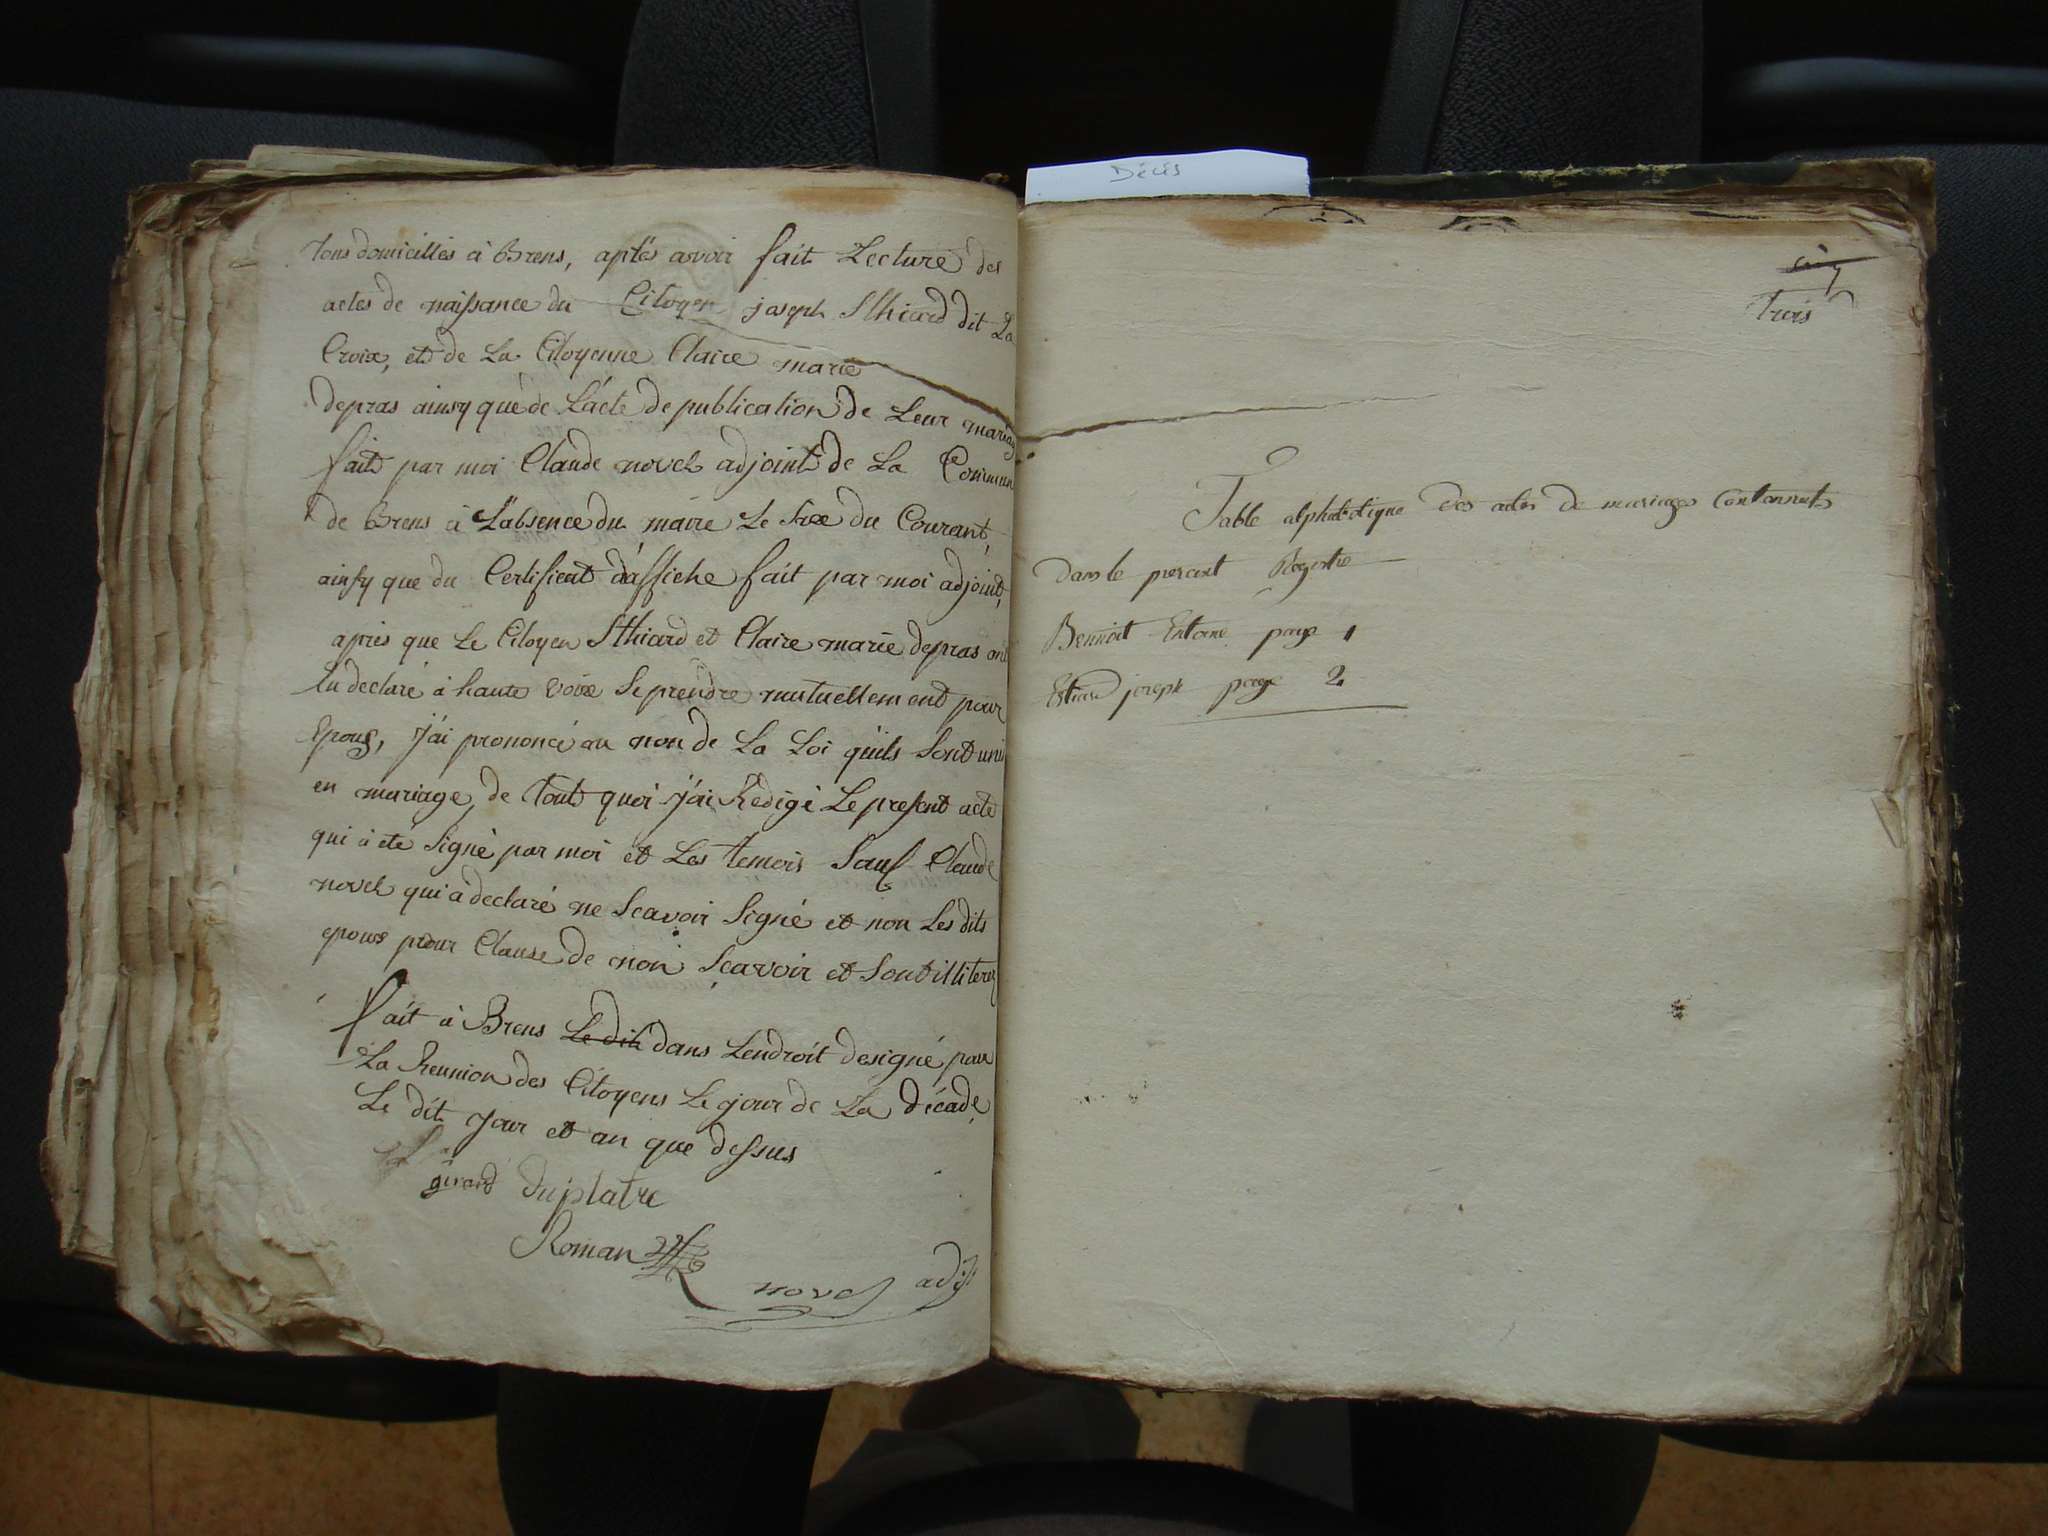 tous domicilliés à Brens, aprés avoir fait Lecture des
actes de naissance du Citoyen joseph Sthiard dit La
Croix, et de La Citoyenne Claire marie
depras ainsy que de L'acte de publication de Leur mariag
fait par moi Claude novel adjoint de La Commune
de Brens à L'absence du maire Le Six du Courant,
ainsy que du Certificat d'affiche fait par moi adjoint,
après que Le Citoyen Sthiard et Claire marie depras ont
declaré à haute voix Se prendre mutuellement pour
Epoux, j'ai prononcé au non de La Loi qu'ils Sont unis
en mariage, de tout quoi j'ai Rédigé Le present acte
qui à eté Signé par moi et Les temois Sauf Claude
novel qui à declaré ne Scavoir Signé et non Les dits
epoux pour Clause de non Scavoir et Sont illiterez
fait à Brens Le dit dans Lendroit designé pour
La Reunion des Citoyens Le jour de La décade,
Le dit jour et an que dessus
girard duplatre
Roman
novel adj
Décès
cinq
trois
Table alphabetique des actes de mariages Contenents
dans le present Registre
Bennoit Entoine page 1
Estiard joseph page 2